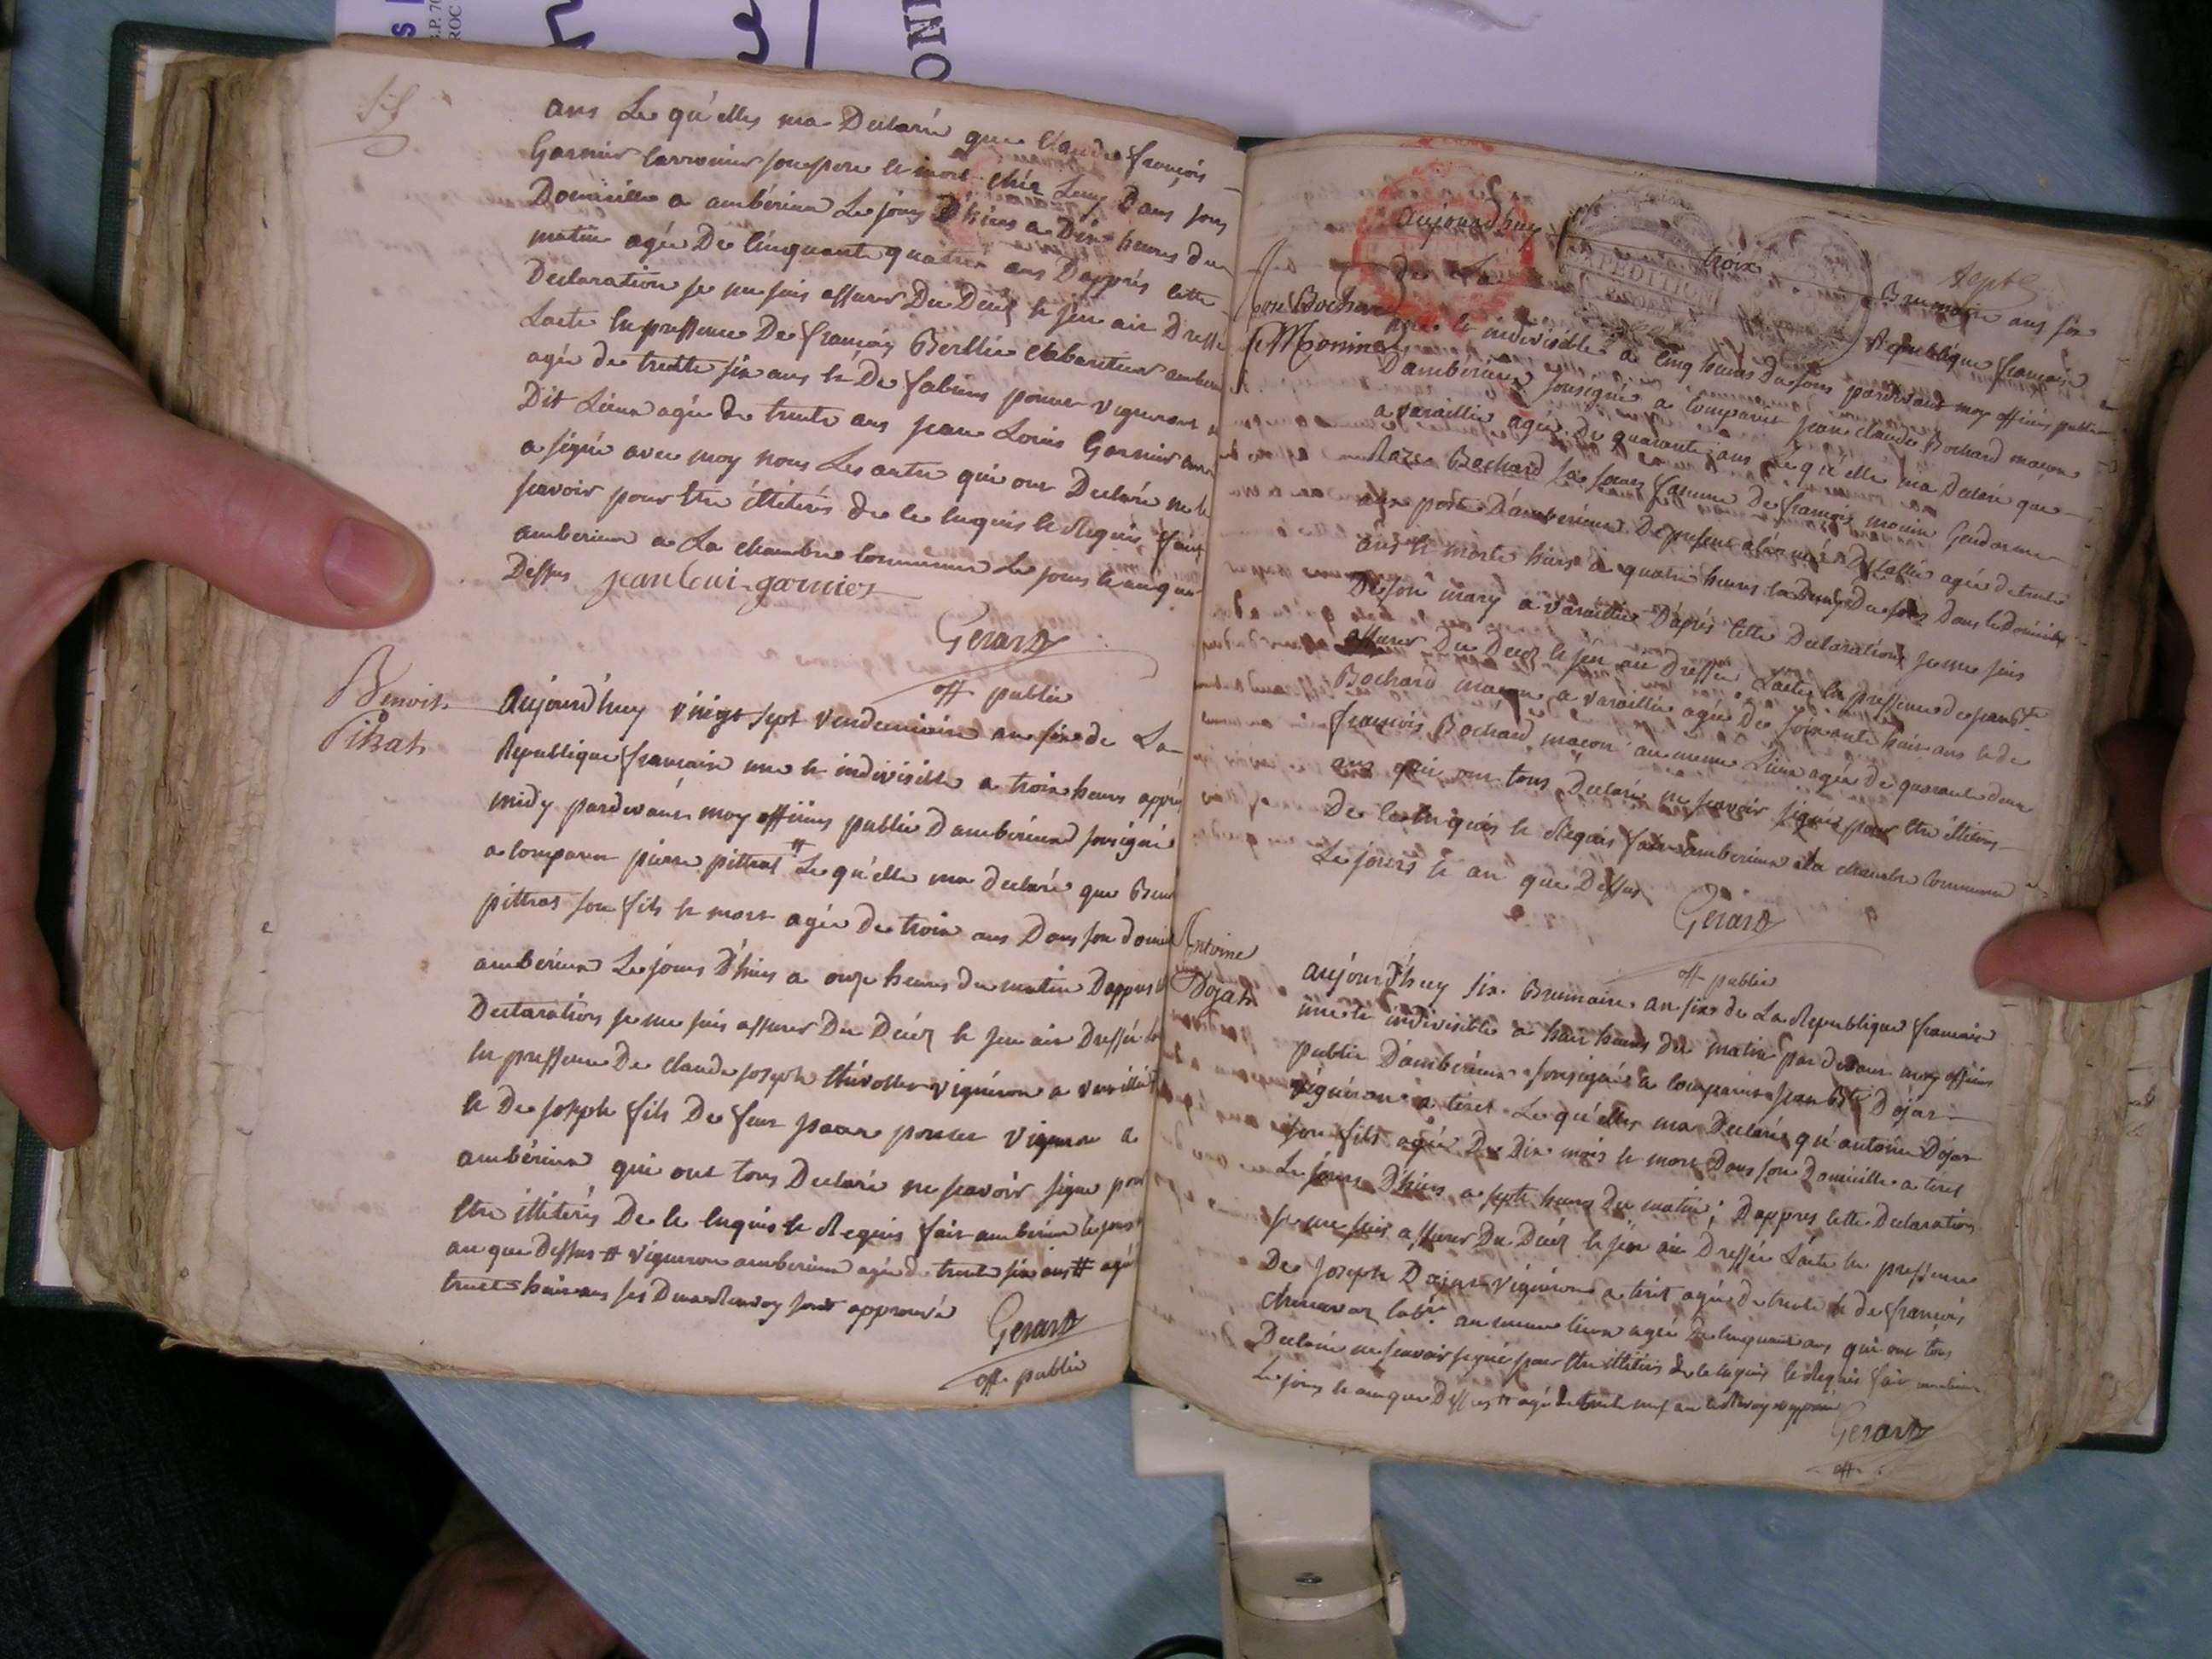 ans Le qu'elles ma Declarée que Claude françois
Garnier son pere et mort chéz Luy Dans son
Domicille a ambérieux Le jour D'hiers a Dix heures du
matin agée De Cinquante quatres ans D'apprés cette
Declaration je me suis assurer Du Decéz et jen aie Dresse
Lacte En pressence De françois Berllie Cabartier
agée de trentte six ans et De fabiens poncet vigneront
Dit Lieux agée de trente ans jean Louis Garnier
a signé avec moy nous Les autre qui ont Declaré ne
scavoir pour Etre illiterés de ce Enquis et Requis fait
amberieux a La chambre Commune Le jour et an que
Dessus jean loui garnier
Gerard
off public
Benoit
Pitrat
aujourd'huy vingt sept vendemiaire an six de La
Republique francaise une et indivisible a trois heures apprés
midy pardevants moy officiers public D'amberieux sousigné
a comparu pierre pittrat # Le qu'elle ma declaré que
pittrat son fils et mort agée de trois ans Dans son
amberieux Le jours D'hiers a onze heures du matin D'appres
Declaration je me suis assurer Du Decéz et jen aie Dressé
En pressence De Claude joseph vigneron a
et De joseph fils De feux poncet vigneron a
ambérieux qui ont tous Declaré ne scavoir signe pour
Etre illiterés De ce Enquis et Requis fait amberieux le jour
an que Dessus # vigneron amberieux agée de trente six ans # agé
trente huit ans Les Deux Renvoy sont approuvé
Gerard
off public
Sept
aujourd'huy trois Brumaire ans six
de La Republique francaise
Bochard
f Moninet
et indivisible a Cinq heures Du soirs pardevant moy officiés public
D'ambérieux sousigné a Comparut jean Claude Bochard macon
a varaillie agée De quarante ans Le qu'elle ma Declaré que
Bochard Sa soeur famme De francois monin Gendarme
au poste D'amberieux De present a Larmée D'itallie agée de trente
ans et morte hiers a quatre heures Du soir Dans le Domicille
De son mary a varaillie D'aprés cette Declaration je me suis
assurer Du Decéz et jen aie Dressée Lacte En pressence de jean Bte
Bochard macon a varaillie agée De soixante huit ans et de
francois Bochard macon au meme Lieux agée de quarante deux
ans qui ont tous Declaré ne scavoir signés pour Etre illiterés
De ce Enquis et Requis fait amberieux a La chambre Commune
Le jours et an que Dessus
Gerard
off public
Antoine
Dojat
aujourd'huy six Brumaire an six de La Republique francaise
une et indivisible a huit heures du matin par devant moy officiers
public D'amberieux sousigné a comparu jean Bte Dojat
vigneron a tiret Le qu'elles ma Declaré qu'antoine Dojat
son fils agée De Dix mois et mort Dans son Domicille a tiret
Le jours D'hiers a sept heures Du matin ; D'appres cette Declaration
je me suis assurer Du Decéz et jen aie Dressée Lacte En pressence
De Joseph Dojat vigneron a tiret agée de trente et de francois
labr. au meme lieux agée De Cinquante ans qui ont tous
Declaré ne scavoir signé pour Etre illiterés De ce Enquis et Requis fait
Le jour et an que Dessus # agé de trente neuf an le Renvoy approuvé
Gerard
off